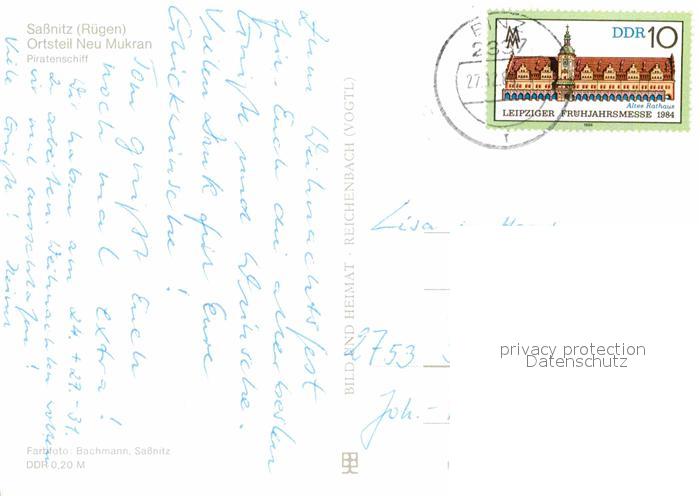 Saßnitz (Rügen)
Ortsteil Neu Mukran
Piratenschiff
Zum Weihnachtsfest
für Euch die allerbesten
Grüße und Wünsche.
Vielen Dank für Eure
Glückwünsche!
Tom grüßt Euch
noch mal extra!
Wir haben am 24. + 27.-31.
zu arbeiten. Weihnachten wollen
wir mal ausschlafen!
Viele Grüße!
Farbfoto: Bachmann, Saßnitz
DDR 0,20 M
BILD UND HEIMAT · REICHENBACH (VOGTL)
BINZ
2337
27.12.8
DDR 10
Altes Rathaus
LEIPZIGER FRÜHJAHRSMESSE 1984
Lisa
2753
Joh.-
privacy protection
Datenschutz